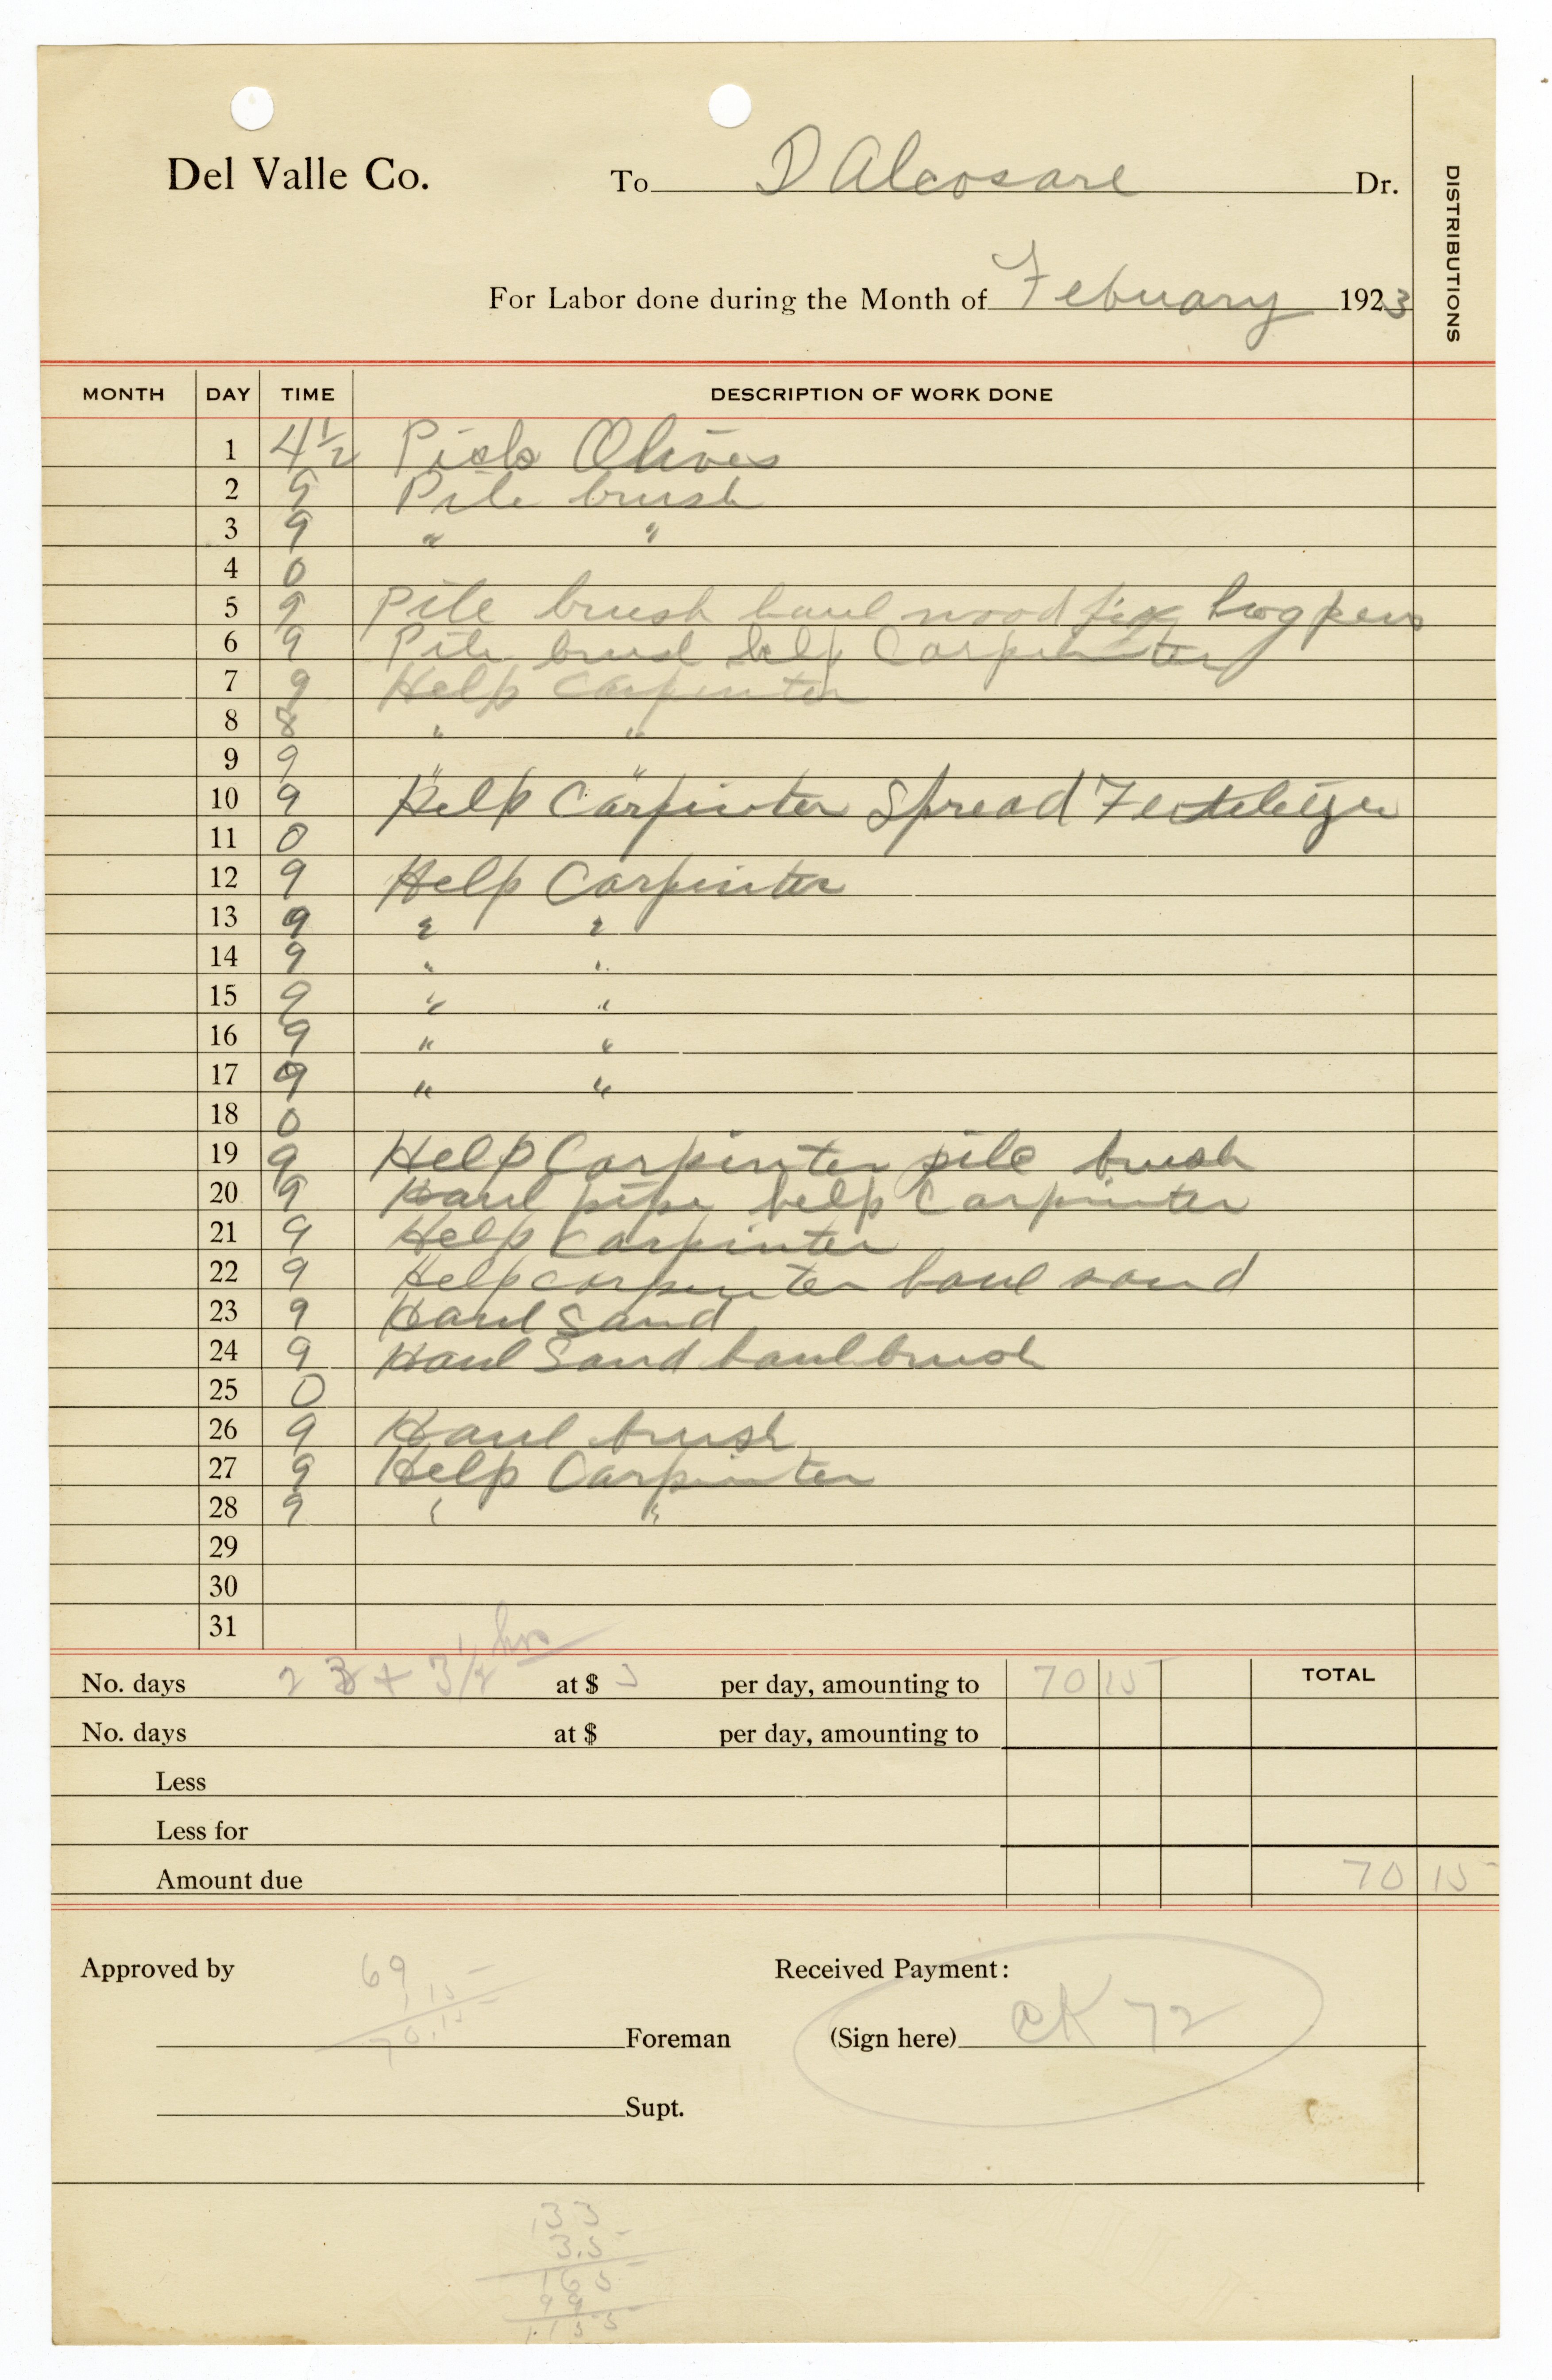 Del Valle Co. To D Alcosare Dr.
DISTRIBUTIONS
For Labor done during the Month of Febuary 1923
MONTH DAY TIME DESCRIPTION OF WORK DONE
1 4 1/2 Pick Olives
2 9 Pile brush
3 9 " "
4 0
5 9 Pile brush haul wood fix hog pens
6 9 Pile brush help Carpinter
7 9 Help Carpinter
8 8 " "
9 9 " "
10 9 Help Carpinter Spread Fertilizer
11 0
12 9 Help Carpinter
13 9 " "
14 9 " "
15 9 " "
16 9 " "
17 9 " "
18 0
19 9 Help Carpinter pile brush
20 9 Haul pipe help Carpinter
21 9 Help Carpinter
22 9 Help carpinter haul sand
23 9 Haul Sand
24 9 Haul Sand haul brush
25 0
26 9 Haul brush
27 9 Help Carpinter
28 9 " "
29
30
31
No. days 23 + 3 1/2 hrs at $ 3 per day, amounting to 70 15 TOTAL
No. days at $ per day, amounting to
Less
Less for
Amount due 70 15
Approved by 69 Received Payment:
1.15
70.15
Foreman (Sign here) CK 72
Supt.
.33
3.5
165
99
1.155